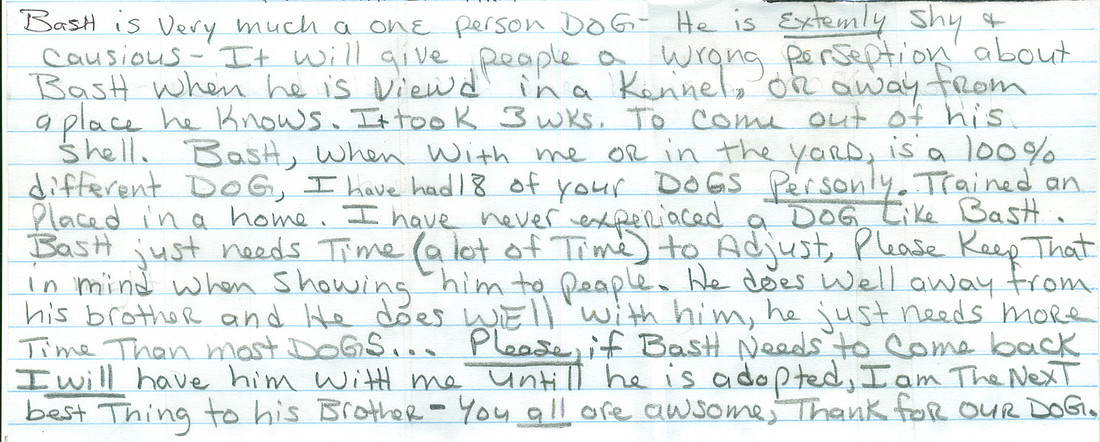 BasH is Very much a one person DOG- He is Extemly Shy &
Causious- It will give peaple a Wrong PerSeption about
BasH when he is Viewd in a Kennel, OR away from
a place he Knows. It took 3 wks. To Come out of his
Shell. BasH, when With me OR in the yaRD, is a 100%
different DOG, I have had 18 of your DOGS Personly. Trained an
Placed in a home. I have never experiaced a DOG Like BasH.
BasH just needs Time (a lot of Time) to Adjust, Please Keep That
in mind when Showing him to peaple. He does Well away from
his brotheR and He does WEll With him, he just needs more
Time Than most DOGS... Please, if BasH Needs to Come back
I will have him WitH me untill he is adopted, I am The NexT
best Thing to his BrotheR - You all are awsome, Thank foR OUR DOG.